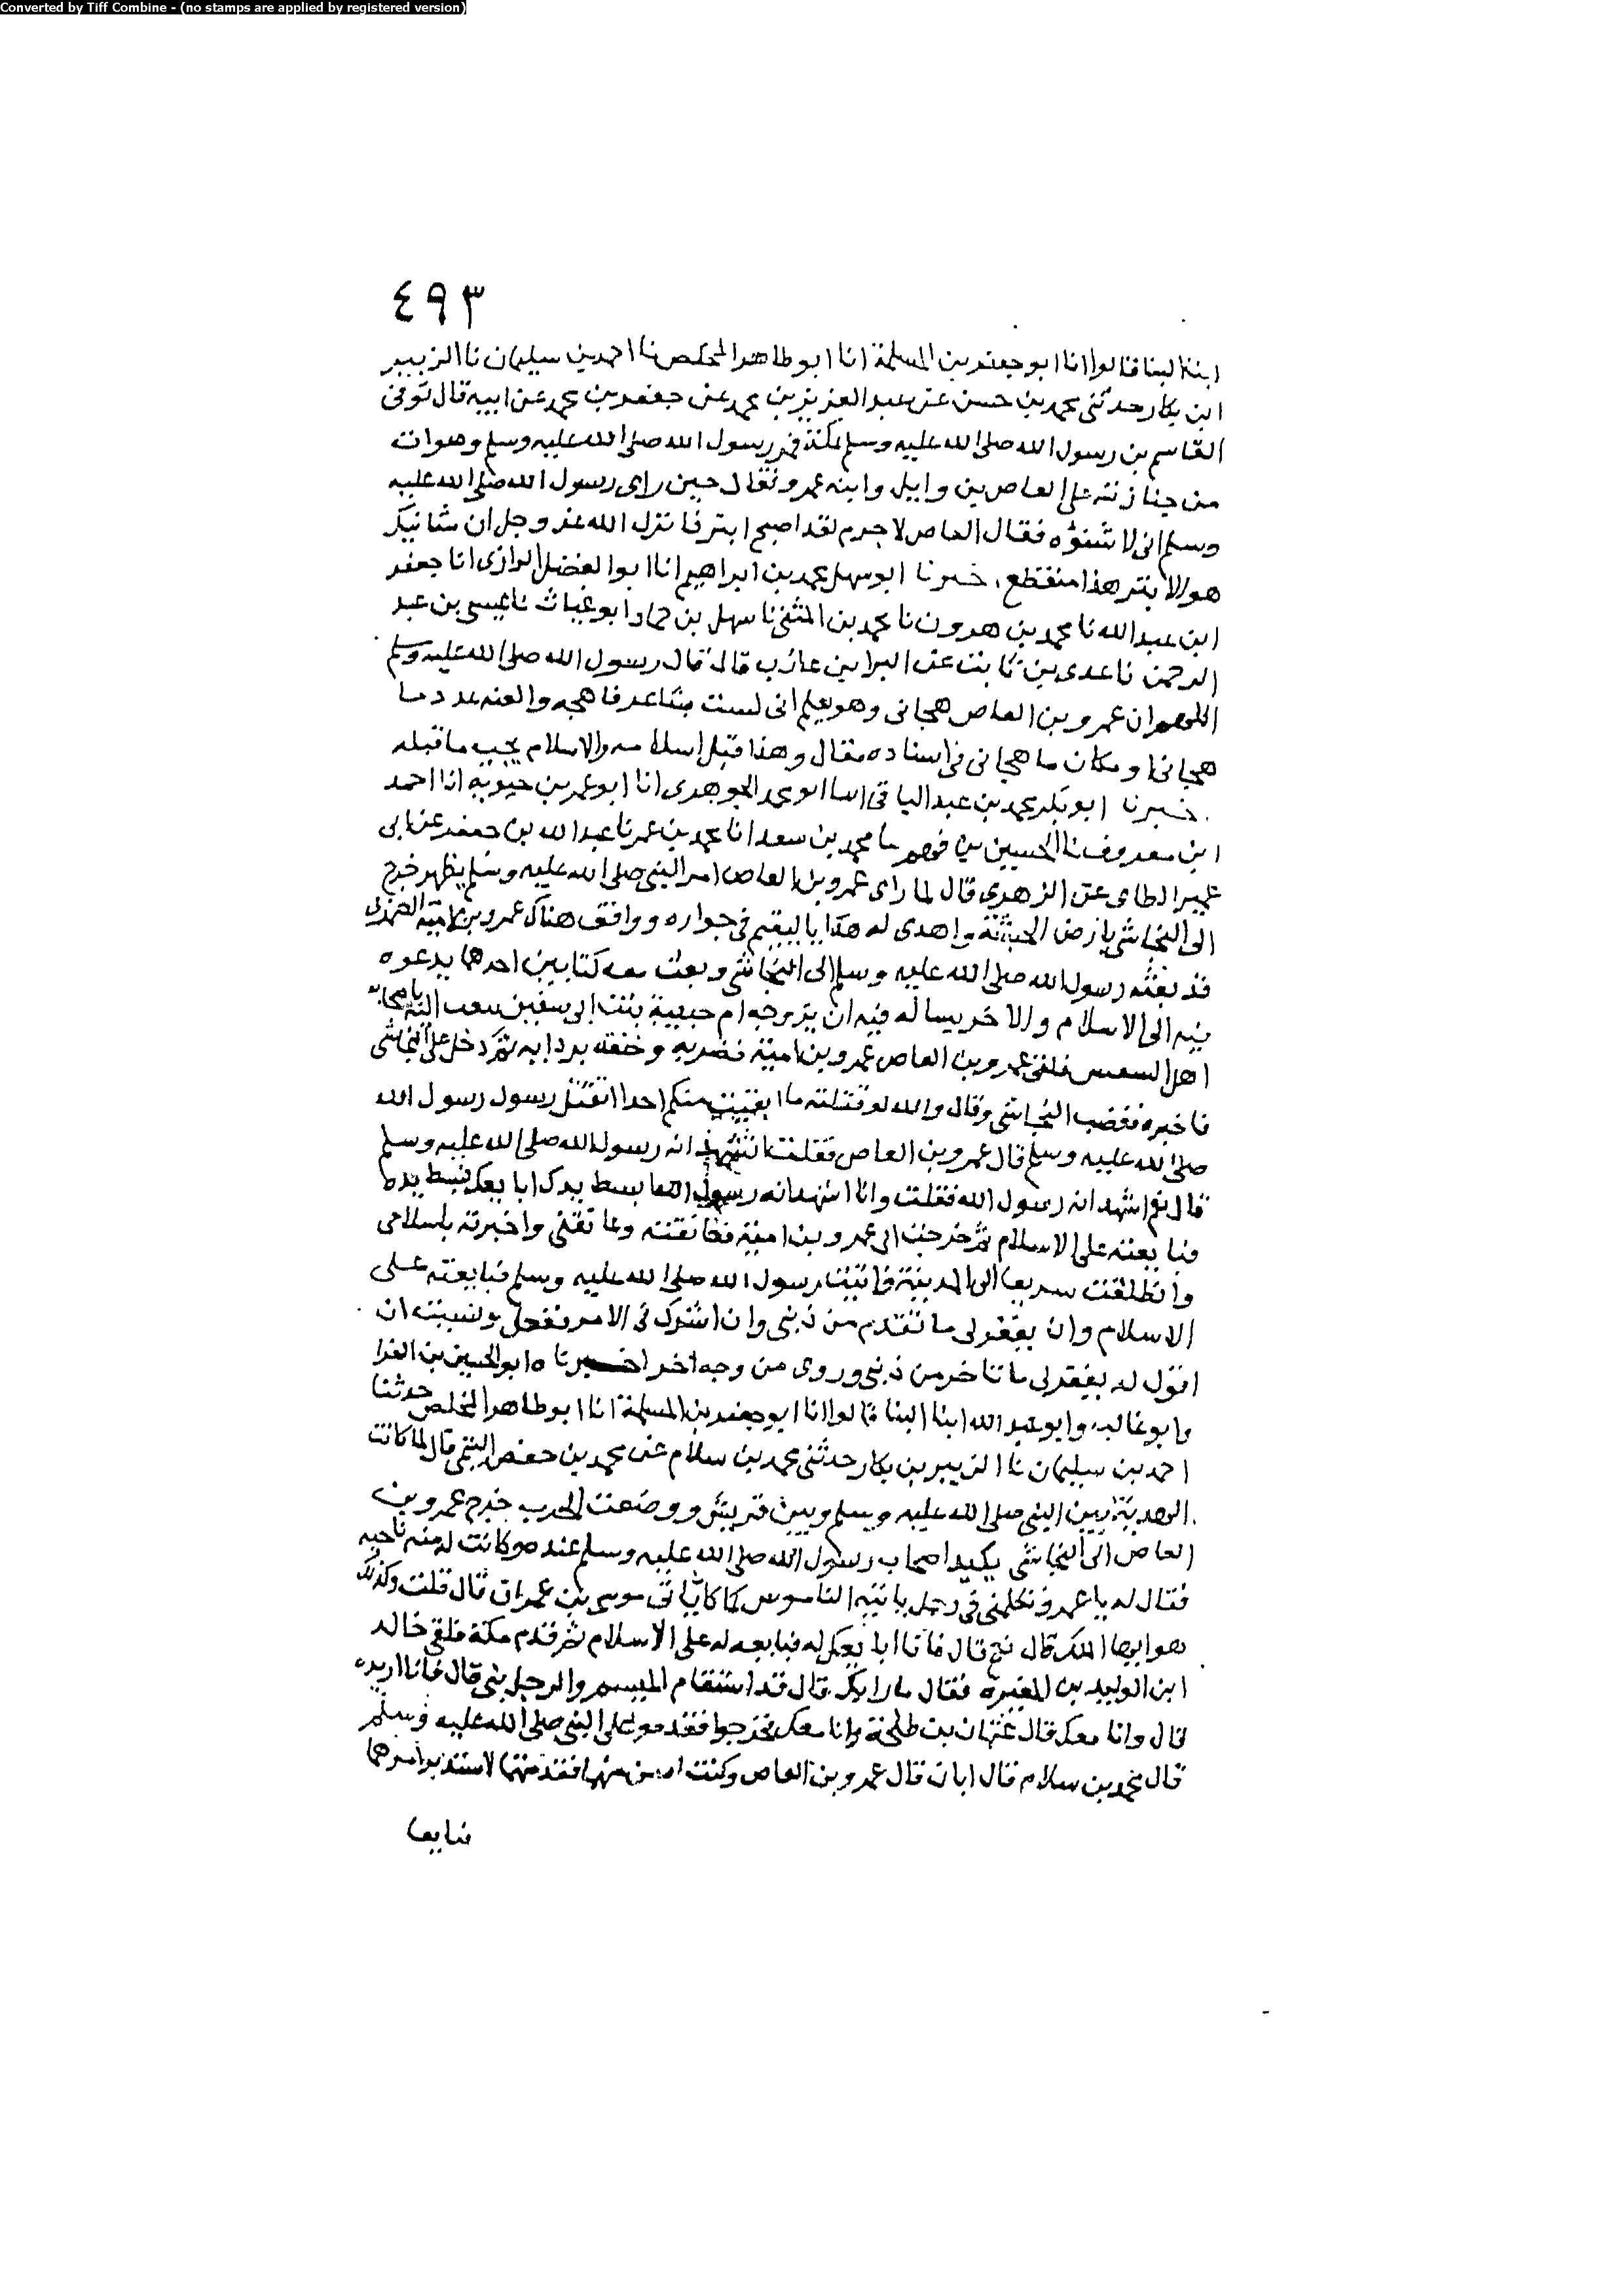 Converted by Tiff Combine - (no stamps are applied by registered version)
٤٩٣
ابنا البنا قالوا انا ابو جعفر بن المسلمة انا ابو طاهر المخلص نا احمد بن سليمان نا الزبير
ابن بكار حدثني محمد بن حسن عن عبد العزيز بن محمد عن جعفر بن محمد عن ابيه قال توفي
القاسم بن رسول الله صلى الله عليه وسلم بمكة فمر رسول الله صلى الله عليه وسلم وهوات
من جنازته على العاص بن وايل وابنه عمرو فقال حين راى رسول الله صلى الله عليه
وسلم انى لا شنؤه فقال العاص لا جرم لقد اصبح ابتر فانزل الله عز وجل ان شانيك
هو الابتر هذا منقطع . خبرنا ابو سهل محمد بن ابراهيم انا ابو الفضل الرازى انا جعفر
ابن عبد الله نا محمد بن هرون نا محمد بن المثنى نا سهل بن حماد ابو غياث نا عيسى بن عبد
الرحمن نا عدى بن ثابت عن البرا بن عازب قال قال رسول الله صلى الله عليه وسلم
اللهم ان عمرو بن العاص هجانى وهو يعلم انى لست بشاعر فاهجه والعنه عدد ما
هجانى او مكان ما هجانى فى اسناده مقال وهذا قبل اسلامه والاسلام يجب ما قبله
. خبرنا ابو بكر محمد بن عبد الباقى الجوهرى انا ابو عمر بن حيويه انا احمد
ابن معروف نا الحسين بن فهم نا محمد بن سعد انا محمد بن عمر نا عبد الله بن جعفر عن ابى
عمير الطاى عن الزهرى قال لما راى عمرو بن العاص امر النبى صلى الله عليه وسلم يظهر خرج
الى النجاشى بارض الحبشة واهدى له هدايا ليقيم فى جواره ووافق هناك عمرو بن امية الضمرى
قد بعثه رسول الله صلى الله عليه وسلم الى النجاشى وبعث معه كتابين احدهما يدعوه
فيه الى الاسلام والاخر يساله فيه ان يزوجه ام حبيبة بنت ابى سفين يبعث اليه باصحابه
اهل فلقى عمرو بن العاص عمرو بن امية فضربه وخنقه بردابه ثم دخل على النجاشى
فاخبره فغضب النجاشى وقال والله لو قتلته ما ابقيت منكم احدا اتقتل رسول رسول الله
صلى الله عليه وسلم قال عمرو بن العاص فقلت اتشهد انه رسول الله صلى الله عليه وسلم
قال نعم اشهد انه رسول الله فقلت وانا اشهد انه رسول الله ابسط يدك ابايعك فبسط يده
فبايعته على الاسلام ثم خرجت الى عمرو بن امية فعانقته وعانقنى واخبرته باسلامى
وانطلقت سريعا الى المدينة فاتيت رسول الله صلى الله عليه وسلم فبايعته على
الاسلام وان يغفر لى ما تقدم من ذنبى وان اشرك فى الامر ففعل ونسيت ان
اقول له يغفر لى ما تاخر من ذنبى وروى من وجه اخر اخبرناه ابو الحسين بن الفرا
وابو غالب وابو عبد الله ابنا البنا قالوا انا ابو جعفر بن المسلمة انا ابو طاهر المخلص حدثنا
احمد بن سليمان نا الزبير بن بكار حدثنى محمد بن سلام عن محمد بن حفص التيمى قال لما كانت
الهدنة بين النبى صلى الله عليه وسلم وبين قريش ووضعت الحرب خرج عمرو بن
العاص الى النجاشى يكيد اصحاب رسول الله صلى الله عليه وسلم عنده وكانت له منه ناحيه
فقال له يا عمرو تكلمنى فى رجل ياتيه الناموس كما كان ياتى موسى بن عمران قال قلت وكذلك
هو ايها الملك قال نعم قال فانا ابايعك له فبايعه له على الاسلام ثم قدم مكة فلقى خالد
ابن الوليد بن المغيرة فقال ما رايك قال قد استقام الميسم والرجل نبى قال فانا اريده
قال وانا معك قال عثمان بن طلحة وانا معك فخرجوا فقدموا على النبى صلى الله عليه وسلم
قال محمد بن سلام قال ابان قال عمرو بن العاص وكنت اسن منهما فقدمتهما لاستدبر امرهما
فبايعا